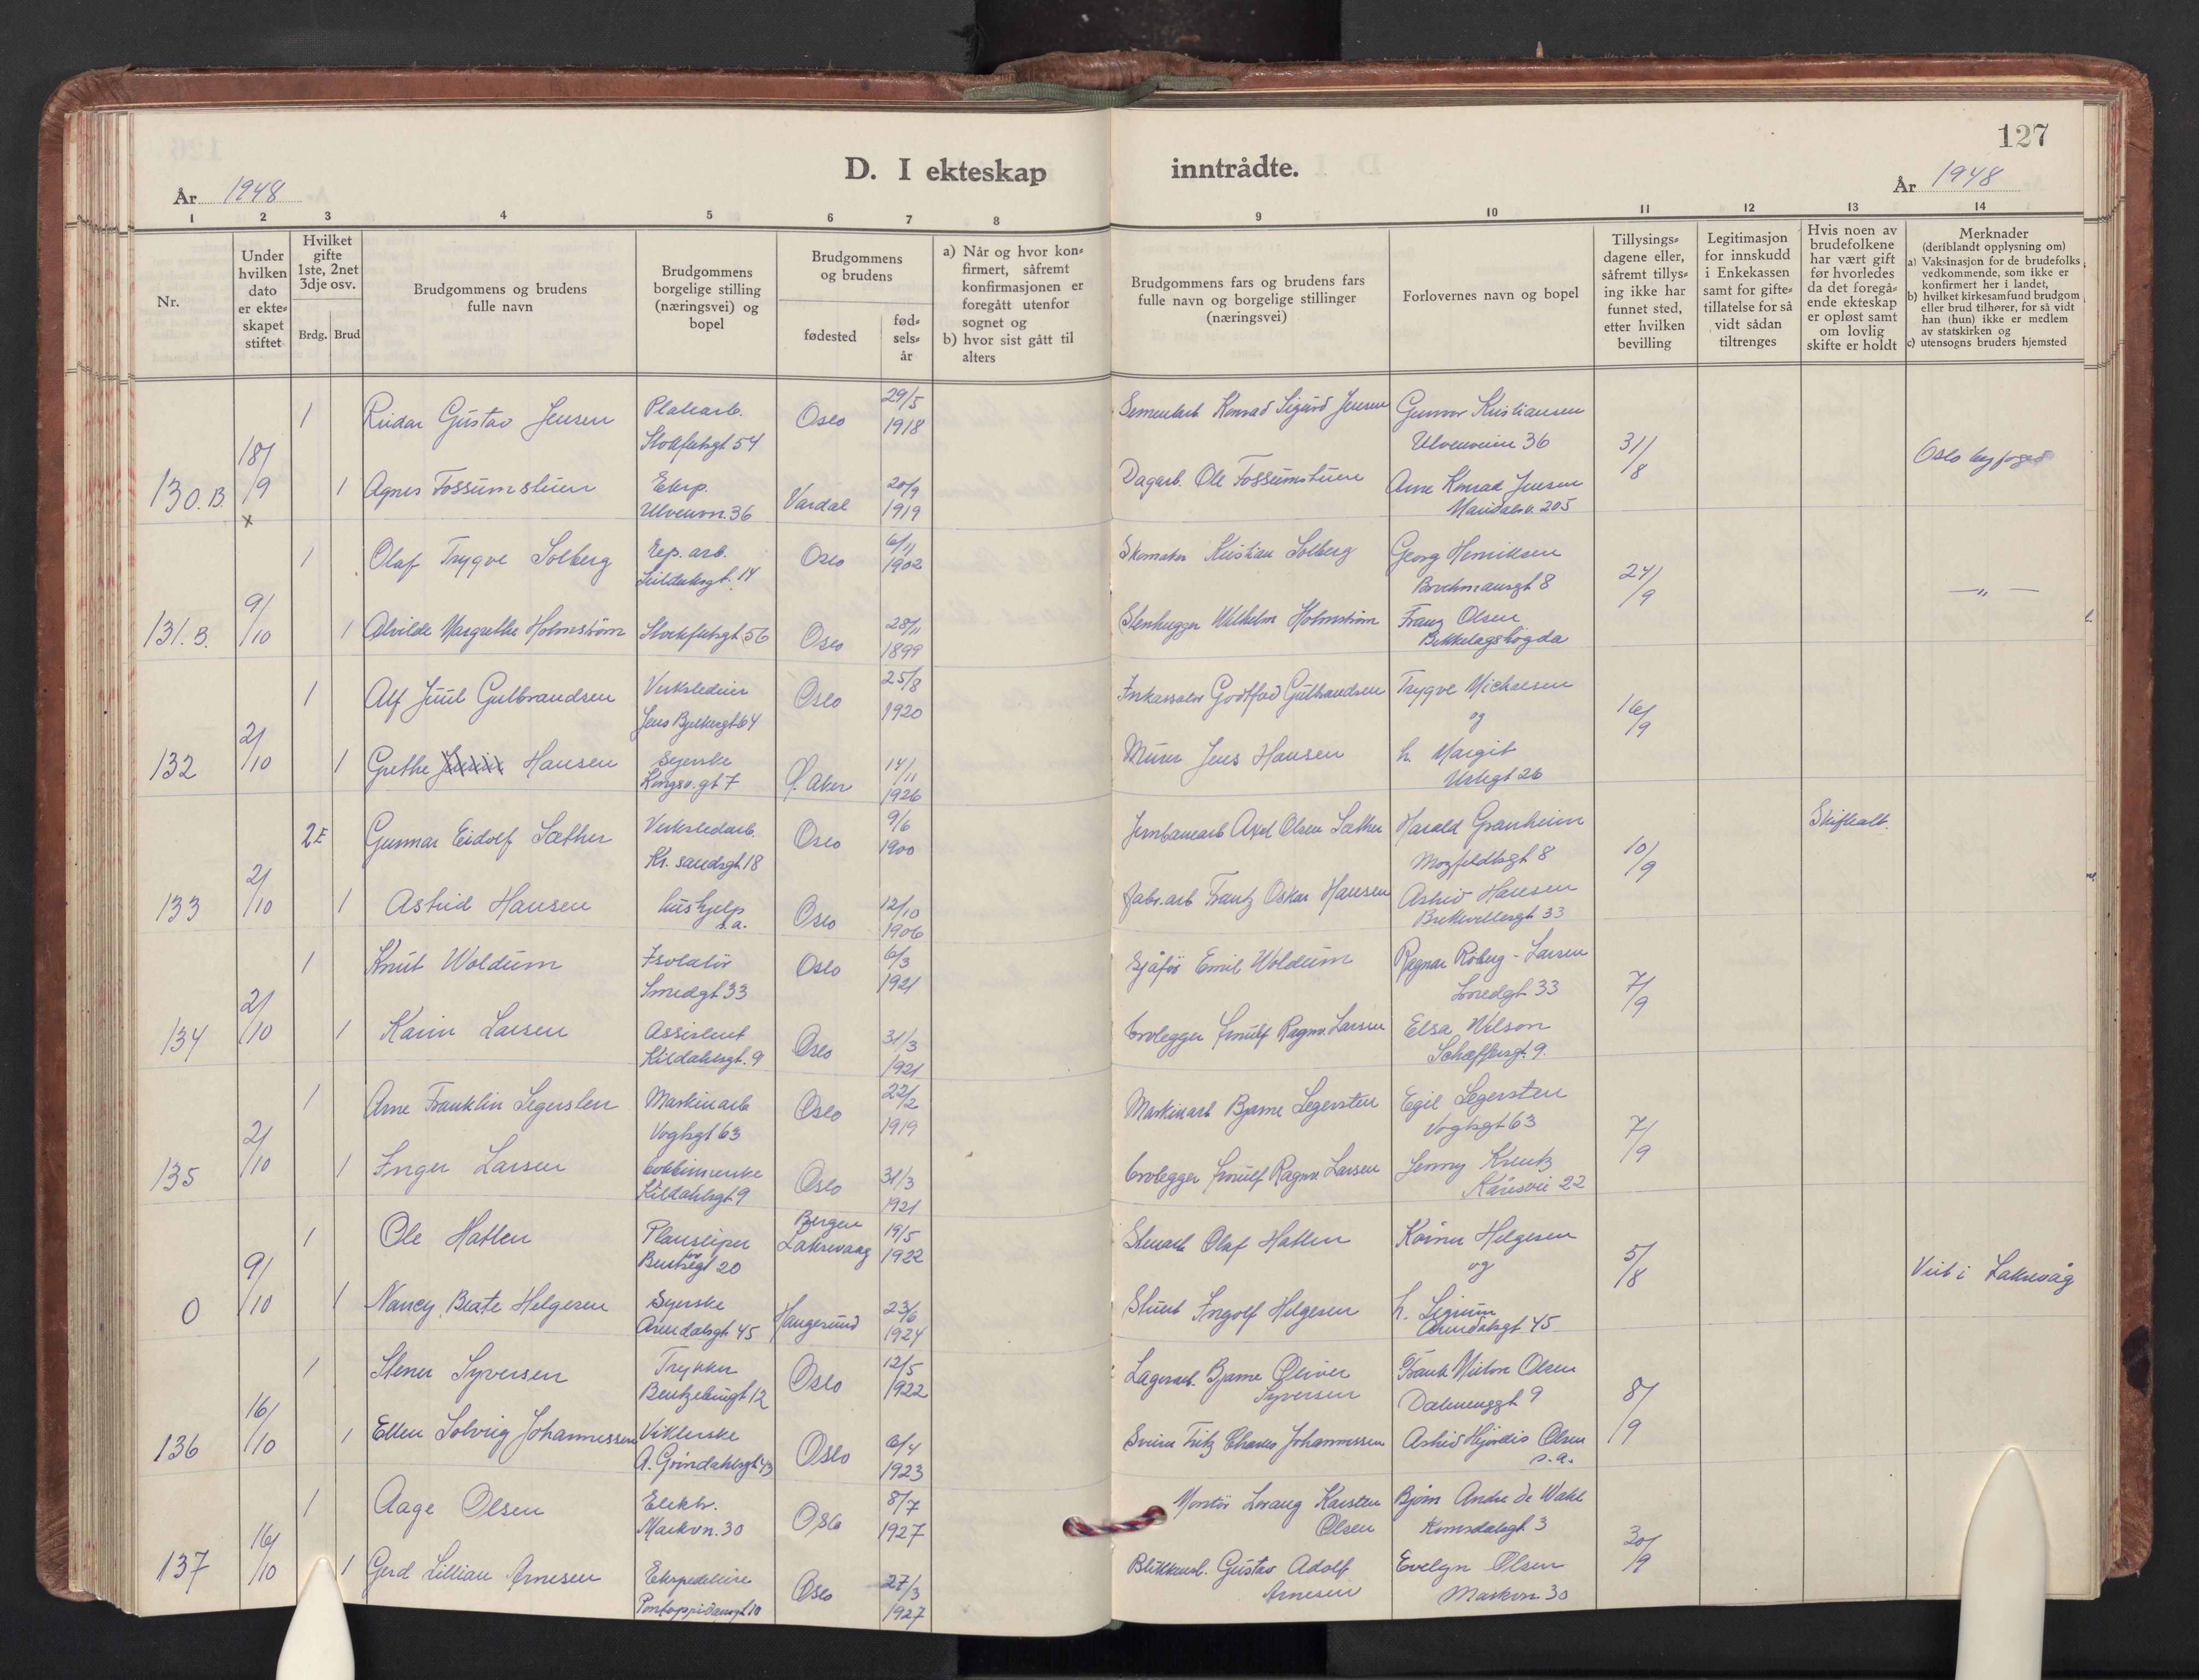 127
D. I ekteskap inntrådte.
År 1948
År 1948
1 2 3 4 5 6 7 8 9 10 11 12 13 14
Nr.
Under hvilken dato er ekte- skapet stiftet
Hvilket gifte 1ste, 2net 3dje osv.
Brdg. Brud
Brudgommens og brudens fulle navn
Brudgommens borgelige stilling (næringsvei) og bopel
Brudgommens og brudens
fødested
fød- sels- år
a) Når og hvor kon- firmert, såfremt konfirmasjonen er foregått utenfor sognet og
b) hvor sist gått til alters
Brudgommens fars og brudens fars fulle navn og borgelige stillinger (næringsvei)
Forlovernes navn og bopel
Tillysings- dagene eller, såfremt tillys- ing ikke har funnet sted, etter hvilken bevilling
Legitimasjon for innskudd i Enkekassen samt for gifte- tillatelse for så vidt sådan tiltrenges
Hvis noen av brudefolkene har vært gift før hvorledes da det foregå- ende ekteskap er opløst samt om lovlig skifte er holdt
Merknader (deriblandt opplysning om)
a) Vaksinasjon for de brudefolks vedkommende, som ikke er konfirmert her i landet,
b) hvilket kirkesamfund brudgom eller brud tilhører, for så vidt han (hun) ikke er medlem av statskirken og
c) utensogns bruders hjemsted
1 Reidar Gustav Jensen Platearb. Oslo 29/5 Sementarb. Konrad Sigurd Jensen Gunvor Kristiansen
Stockfletsgt 54 1918 Ulvenveien 36
130.B. 18/9 x 1 Agnes Fossumstuen Eksp. Vardal 20/9 Dagarb. Ole Fossumstuen Arne Konrad Jensen 31/8 Oslo byfoged
Ulvenvn. 36 1919 Maridalsv. 205
1 Olaf Trygve Solberg Rep. arb. Oslo 6/11 Skomaker Kristian Solberg Georg Henriksen
14 1902 8 24/9 — " —
131.B. 9/10 1 Alvilde Margrethe Holmstrøm Stockfletsgt 56 Oslo 28/11 Stenhugger Wilhelm Holmstrøm Franz Olsen
1899 Bekkelagshøgda
1 Alf Juul Gulbrandsen Oslo 25/8 Inkassator Godtfred Gulbrandsen Trygve Michaelsen
Jens Bjelkesgt 64 1920 og 16/9
132 2/10 1 Grethe Hansen Syerske Ø. Aker 14/11 Murer Jens Hansen h. Margit
Kongsv. gt 7 1926 Urtegt 26
2 Gunnar Eidolf Sæther Verkstedarb. Oslo 9/6 Jernbanearb Axel Olsen Sæther Harald Granheim Skifteatt.
Kr. sandsgt 18 1900 Mogfeldtsgt 8 10/9
133 2/10 1 Astrid Hansen hushjelp Oslo 12/10 Fabr.arb Frantz Oskar Hansen Astrid Hansen
s.a. 1906 33
1 Knut Woldum Isolatør Oslo 6/3 Sjåfør Emil Woldum Ragnar Roberg-Larsen
Smedgt 33 1921 Smedgt 33 7/9
134 2/10 1 Karin Larsen Assistent Oslo 31/3 Brolegger Ragnv. Larsen Elsa Nilson
Kildahlsgt. 9 1921 Schæffersgt. 9.
1 Arne Franklin Segersten Maskinarb Oslo 22/2 Maskinarb Bjarne Segersten Egil Segersten
Vogtsgt 63 1919 Vogtsgt 63 7/9
135 2/10 1 Inger Larsen Oslo 31/3 Brolegger Ragnv. Larsen Jenny Kreutz
Kildahlsgt 9 1921 22
1 Ole Hatlen Bergen Laksevaag 19/5 Olaf Hatlen Helgesen
20 1922 og 5/8
0 9/10 1 Nancy Beate Helgesen Syerske Haugesund 23/6 Stuert Ingolf Helgesen h. Viet i Laksevåg
Arendalsgt 45 1924 Arendalsgt 45
1 Stener Syversen Trykker Oslo 12/5 Lagerarb. Bjarne Oliver Syversen Frank Milton Olsen
Bentzebrugt 12 1922 Dælenenggt 9 8/9
136 16/10 1 Ellen Solveig Johannessen Viklerske Oslo 6/4 Fritz Charles Johannessen Astrid Hjørdis Olsen
A. Grindahlsgt 43 1923 s.a.
1 Aage Olsen Elektr. Oslo 8/7 Montør Lorang Karsten Olsen Bjørn Andre de Wahl
Markvn. 30 1927 Romsdalsgt. 3 30/9
137 16/10 1 Gerd Lillian Arnesen Oslo 27/3 Gustav Adolf Arnesen Evelyn Olsen
Pontoppidansgt 10 1927 Markvn. 30